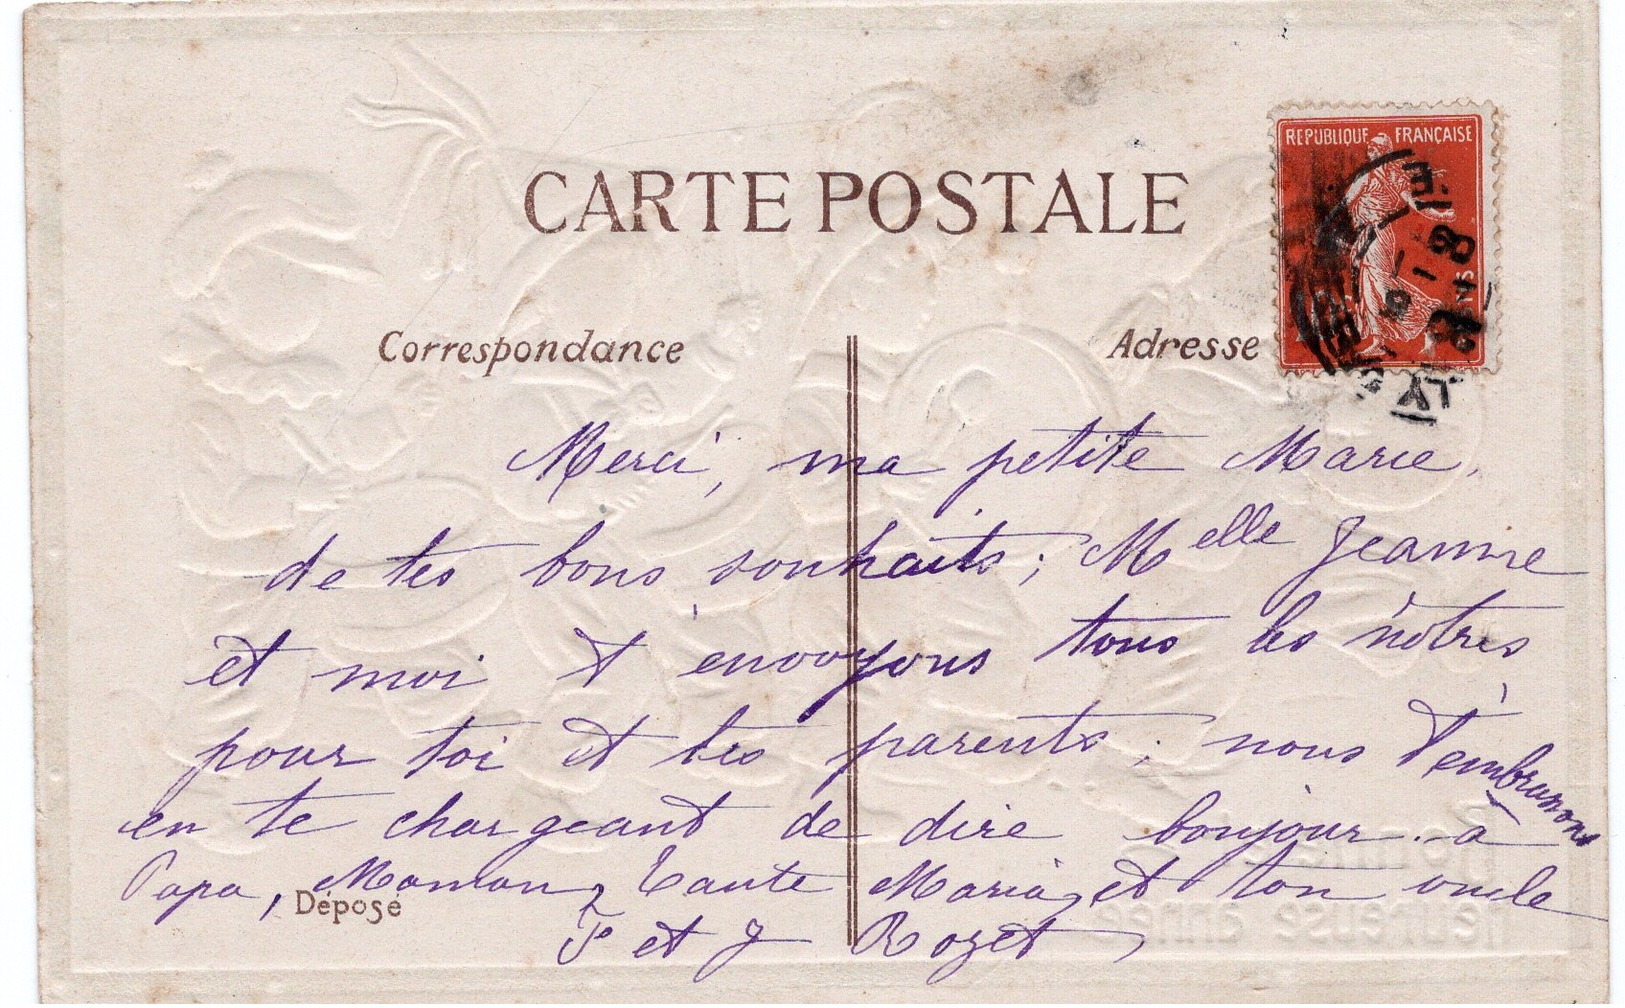 CARTE POSTALE
REPUBLIQUE FRANÇAISE
Correspondance
Adresse
Merci, ma petite Marie,
de tes bons souhaits; Melle Jeanne
et moi t'envoyons tous les nôtres,
pour toi et tes parents; nous t'embrassons
en te chargeant de dire bonjour à
Papa, Maman, Tante Maria, et ton oncle
Déposé
F et J Rozet
Heureuse année